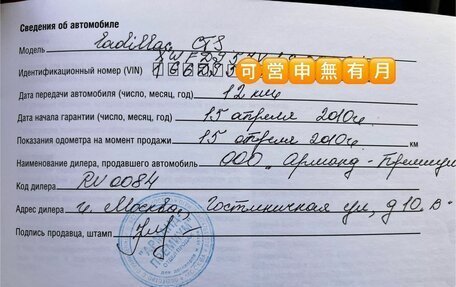 Сведения об автомобиле
Модель Cadillac CTS
Идентификационный номер (VIN) 可営申無有月
Дата передачи автомобиля (число, месяц, год) 12 км
Дата начала гарантии (число, месяц, год) 15 апреля 2010г.
Показания одометра на момент продажи 15 апреля 2010г. км
Наименование дилера, продавшего автомобиль ООО „Арманд - Премиум
Код дилера RU0084
Адрес дилера г. Москва, Гостиничная ул, д 10. В
Подпись продавца, штамп